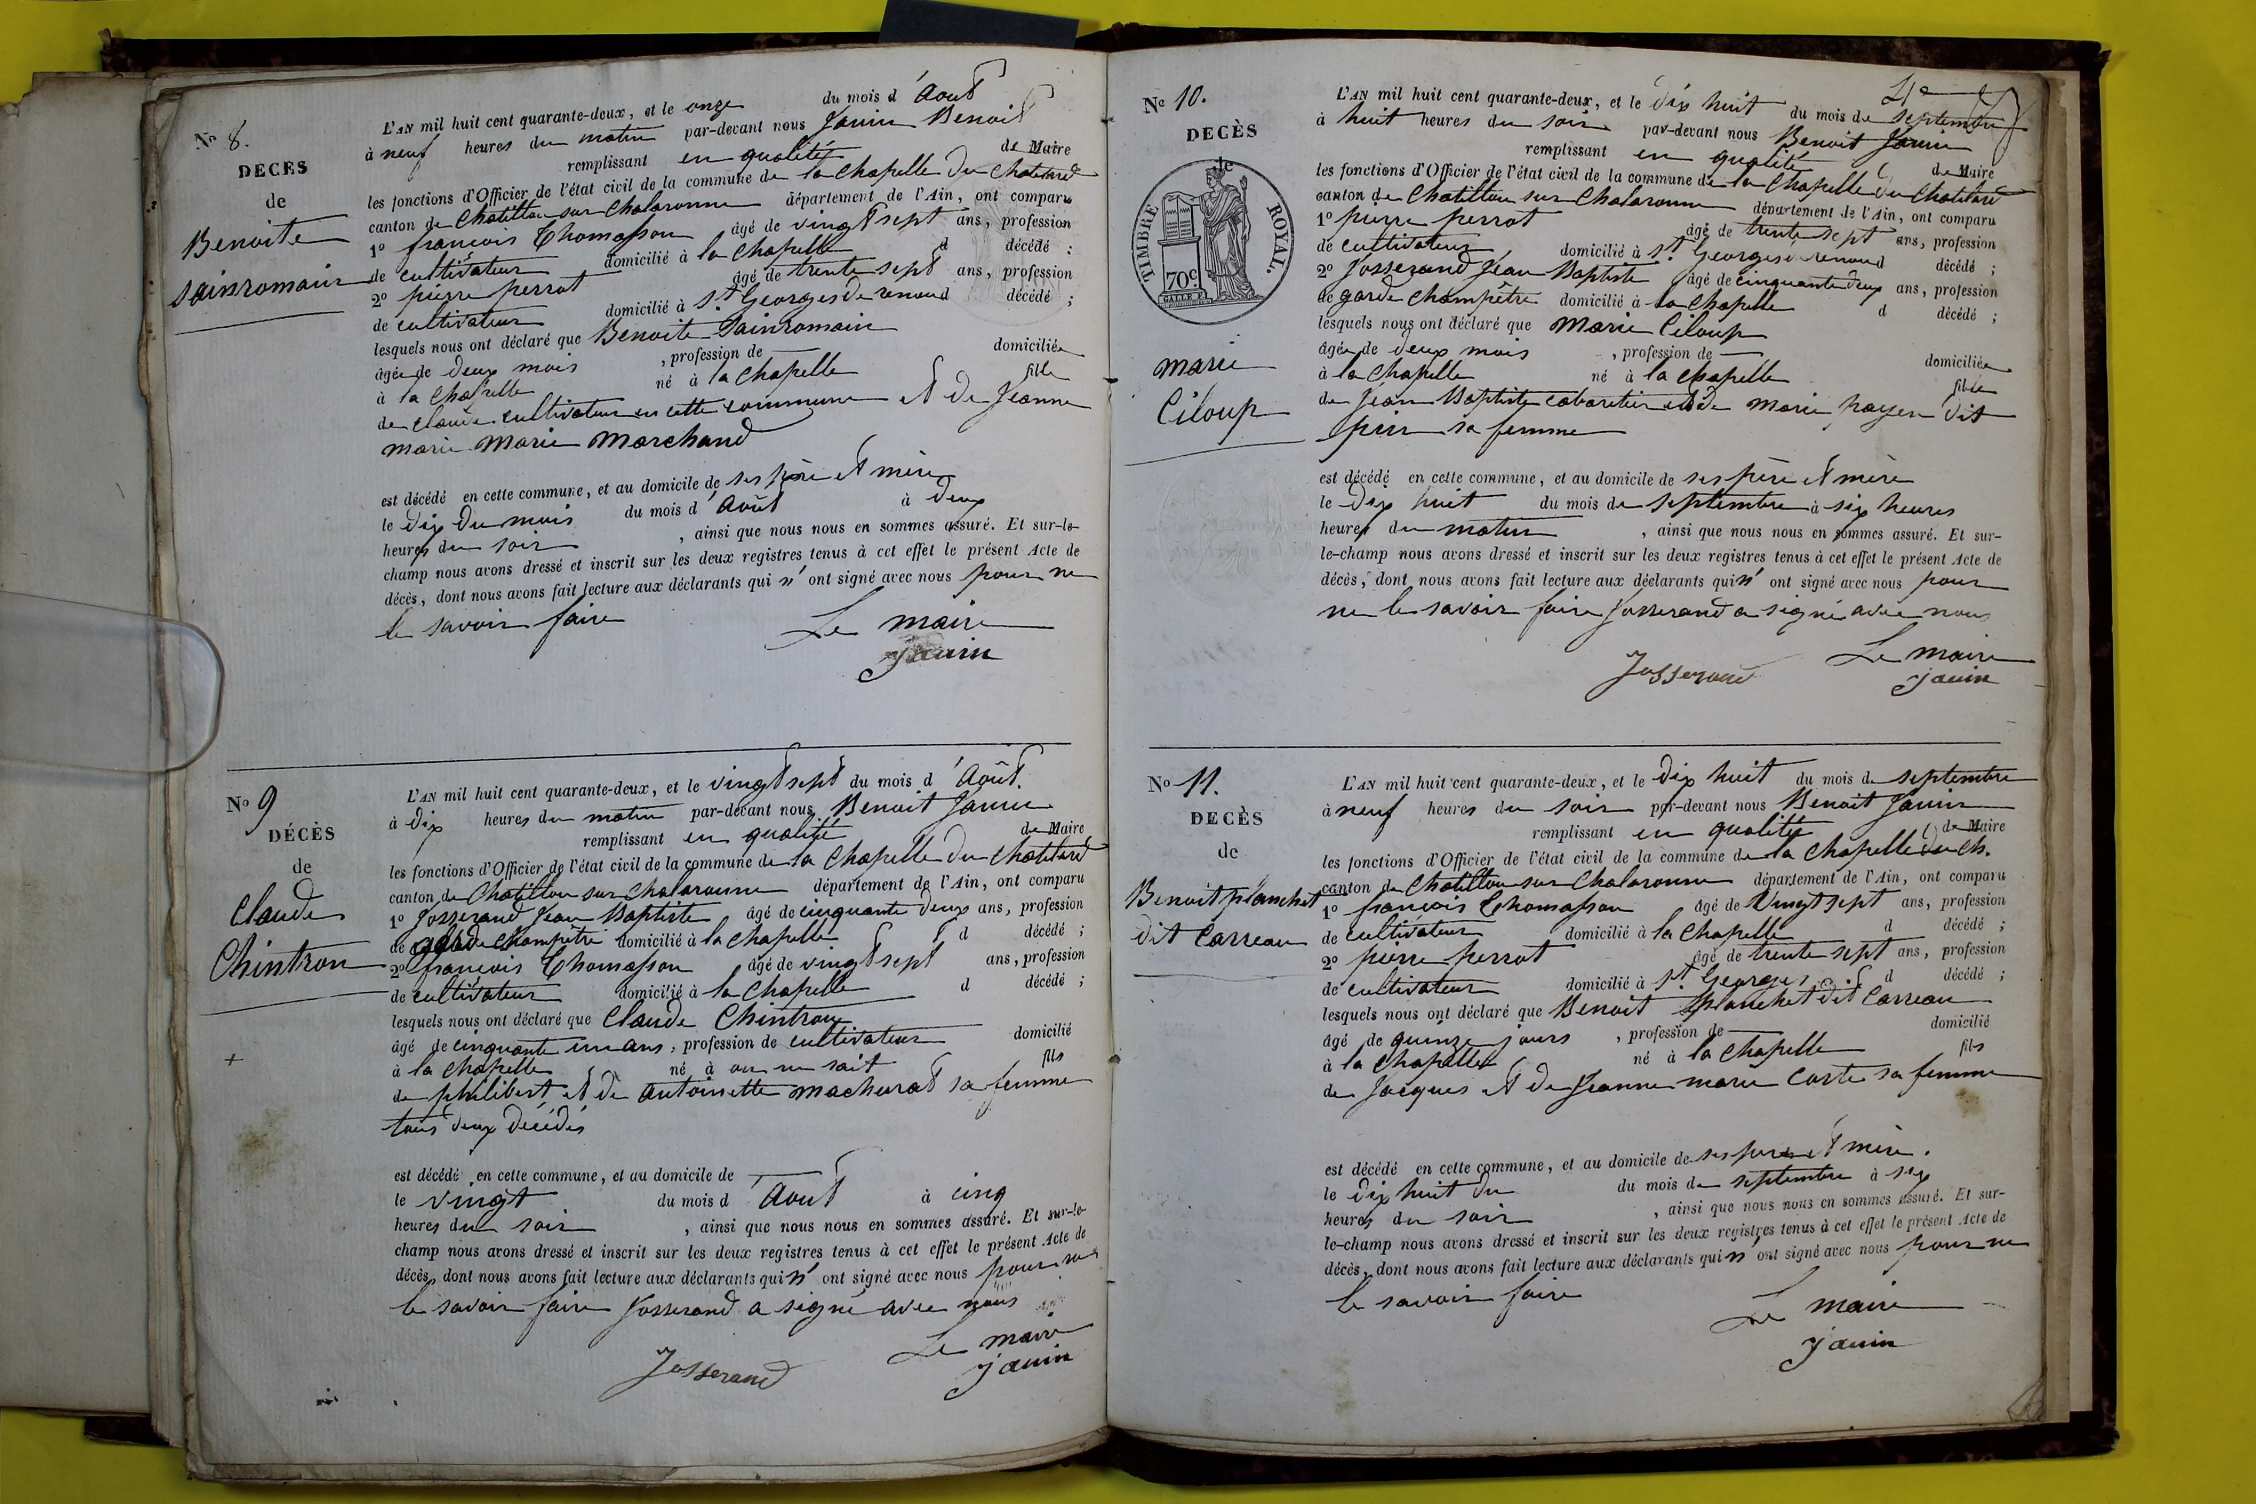 No 8.
DECÈS
de
Benoite
Sainromain
L'AN mil huit cent quarante-deux, et le onze du mois d'Août
à neuf heures du matin par-devant nous Janin Benoit
remplissant en qualité de Maire
les fonctions d'Officier de l'état civil de la commune de la Chapelle du Chatelard
canton de Chatillon sur Chalaronne département de l'Ain, ont comparu
1º francois Thomasson âgé de vingt sept ans, profession
de cultivateur domicilié à la Chapelle d décédé ;
2º pierre perrat âgé de trente sept ans, profession
de cultivateur domicilié à St. Georges de renond décédé ;
lesquels nous ont déclaré que Benoite Sainromain
âgée de deux mois , profession de — domiciliée
à la Chapelle né à la Chapelle fille
de claude cultivateur en cette commune et de Jeanne
marie Marie Marchand
est décédé en cette commune, et au domicile de ses père et mère
le dix du mois du mois d'Août à deux
heures du soir , ainsi que nous nous en sommes assuré. Et sur-le-
champ nous avons dressé et inscrit sur les deux registres tenus à cet effet le présent Acte de
décès, dont nous avons fait lecture aux déclarants qui n'ont signé avec nous pour ne
le savoir faire
Le maire
janin
No 9
DÉCÈS
de
Claude
Chintron
L'AN mil huit cent quarante-deux, et le vingt sept du mois d'Août.
à dix heures du matin par-devant nous Benoit Janin
remplissant en qualité de Maire
les fonctions d'Officier de l'état civil de la commune de la Chapelle du Chatelard
canton de Chatillon sur Chalaronne département de l'Ain, ont comparu
1º Josserand Jean Baptiste âgé de cinquante deux ans, profession
de garde champêtre domicilié à la chapelle d décédé ;
2º francois Thomasson âgé de vingt sept ans, profession
de cultivateur domicilié à la Chapelle d décédé ;
lesquels nous ont déclaré que Claude Chintron
âgé de cinquante un ans, profession de cultivateur domicilié
à la Chapelle né à on ne sait fils
de philibert et de antoinette machurat sa femme
tous deux décédés
est décédé en cette commune, et au domicile de —
le vingt du mois d'Août à cinq
heures du soir , ainsi que nous nous en sommes assuré. Et sur-le-
champ nous avons dressé et inscrit sur les deux registres tenus à cet effet le présent Acte de
décès, dont nous avons fait lecture aux déclarants qui n'ont signé avec nous pour ne
le savoir faire Josserand a signé avec nous
Josserand
Le maire
janin
No 10.
DECÈS
TIMBRE ROYAL.
70c.
marie
Ciloup
L'AN mil huit cent quarante-deux, et le dix huit du mois de septembre
à huit heures du soir par-devant nous Benoit Janin
remplissant en qualité de Maire
les fonctions d'Officier de l'état civil de la commune de la Chapelle du Chatelard
canton de Chatillon sur Chalaronne département de l'Ain, ont comparu
1º pierre perrat âgé de trente sept ans, profession
de cultivateur domicilié à St. Georges de renond décédé ;
2º Josserand Jean Baptiste âgé de cinquante deux ans, profession
de garde champêtre domicilié à la Chapelle d décédé ;
lesquels nous ont déclaré que Marie Ciloup
âgée de deux mois , profession de — domiciliée
à la Chapelle né à la Chapelle fille
de Jean Baptiste cabaretier et de marie payen dit
pin sa femme
est décédé en cette commune, et au domicile de ses père et mère
le dix huit du mois de septembre à six heures
heures du matin , ainsi que nous nous en sommes assuré. Et sur-
le-champ nous avons dressé et inscrit sur les deux registres tenus à cet effet le présent Acte de
décès, dont nous avons fait lecture aux déclarants qui n'ont signé avec nous pour
ne le savoir faire Josserand a signé avec nous
Josserand
Le maire
janin
No 11.
DECÈS
de
Benoit planchet
dit Carreau
L'AN mil huit cent quarante-deux, et le dix huit du mois de septembre
à neuf heures du soir par-devant nous Benoit Janin
remplissant en qualité de Maire
les fonctions d'Officier de l'état civil de la commune de la Chapelle du Ch.
canton de Chatillon sur Chalaronne département de l'Ain, ont comparu
1º francois Thomasson âgé de Vingt sept ans, profession
de cultivateur domicilié à la Chapelle d décédé ;
2º pierre perrat âgé de trente sept ans, profession
de cultivateur domicilié à St. Georges d décédé ;
lesquels nous ont déclaré que Benoit planchet dit Carreau
âgé de quinze jours , profession de — domicilié
à la Chapelle né à la Chapelle fils
de Jacques et de Jeanne marie Carte sa femme
est décédé en cette commune, et au domicile de ses père et mère.
le dix huit du du mois de septembre à six
heures du soir , ainsi que nous nous en sommes assuré. Et sur-
le-champ nous avons dressé et inscrit sur les deux registres tenus à cet effet le présent Acte de
décès, dont nous avons fait lecture aux déclarants qui n'ont signé avec nous pour ne
le savoir faire
Le maire
janin